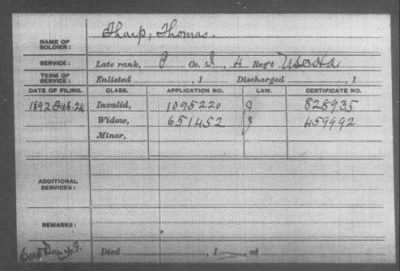 NAME OF SOLDIER: Tharp, Thomas.
SERVICE: Late rank, P Co. I, 4 Reg't
TERM OF SERVICE: Enlisted , 1 Discharged , 1
DATE OF FILING. CLASS. APPLICATION NO. LAW. CERTIFICATE NO.
1892 Feb. 24 Invalid, 1095220 J 828935
Widow, 651452 J 459992
Minor,
ADDITIONAL SERVICES:
REMARKS:
Died , 1 at